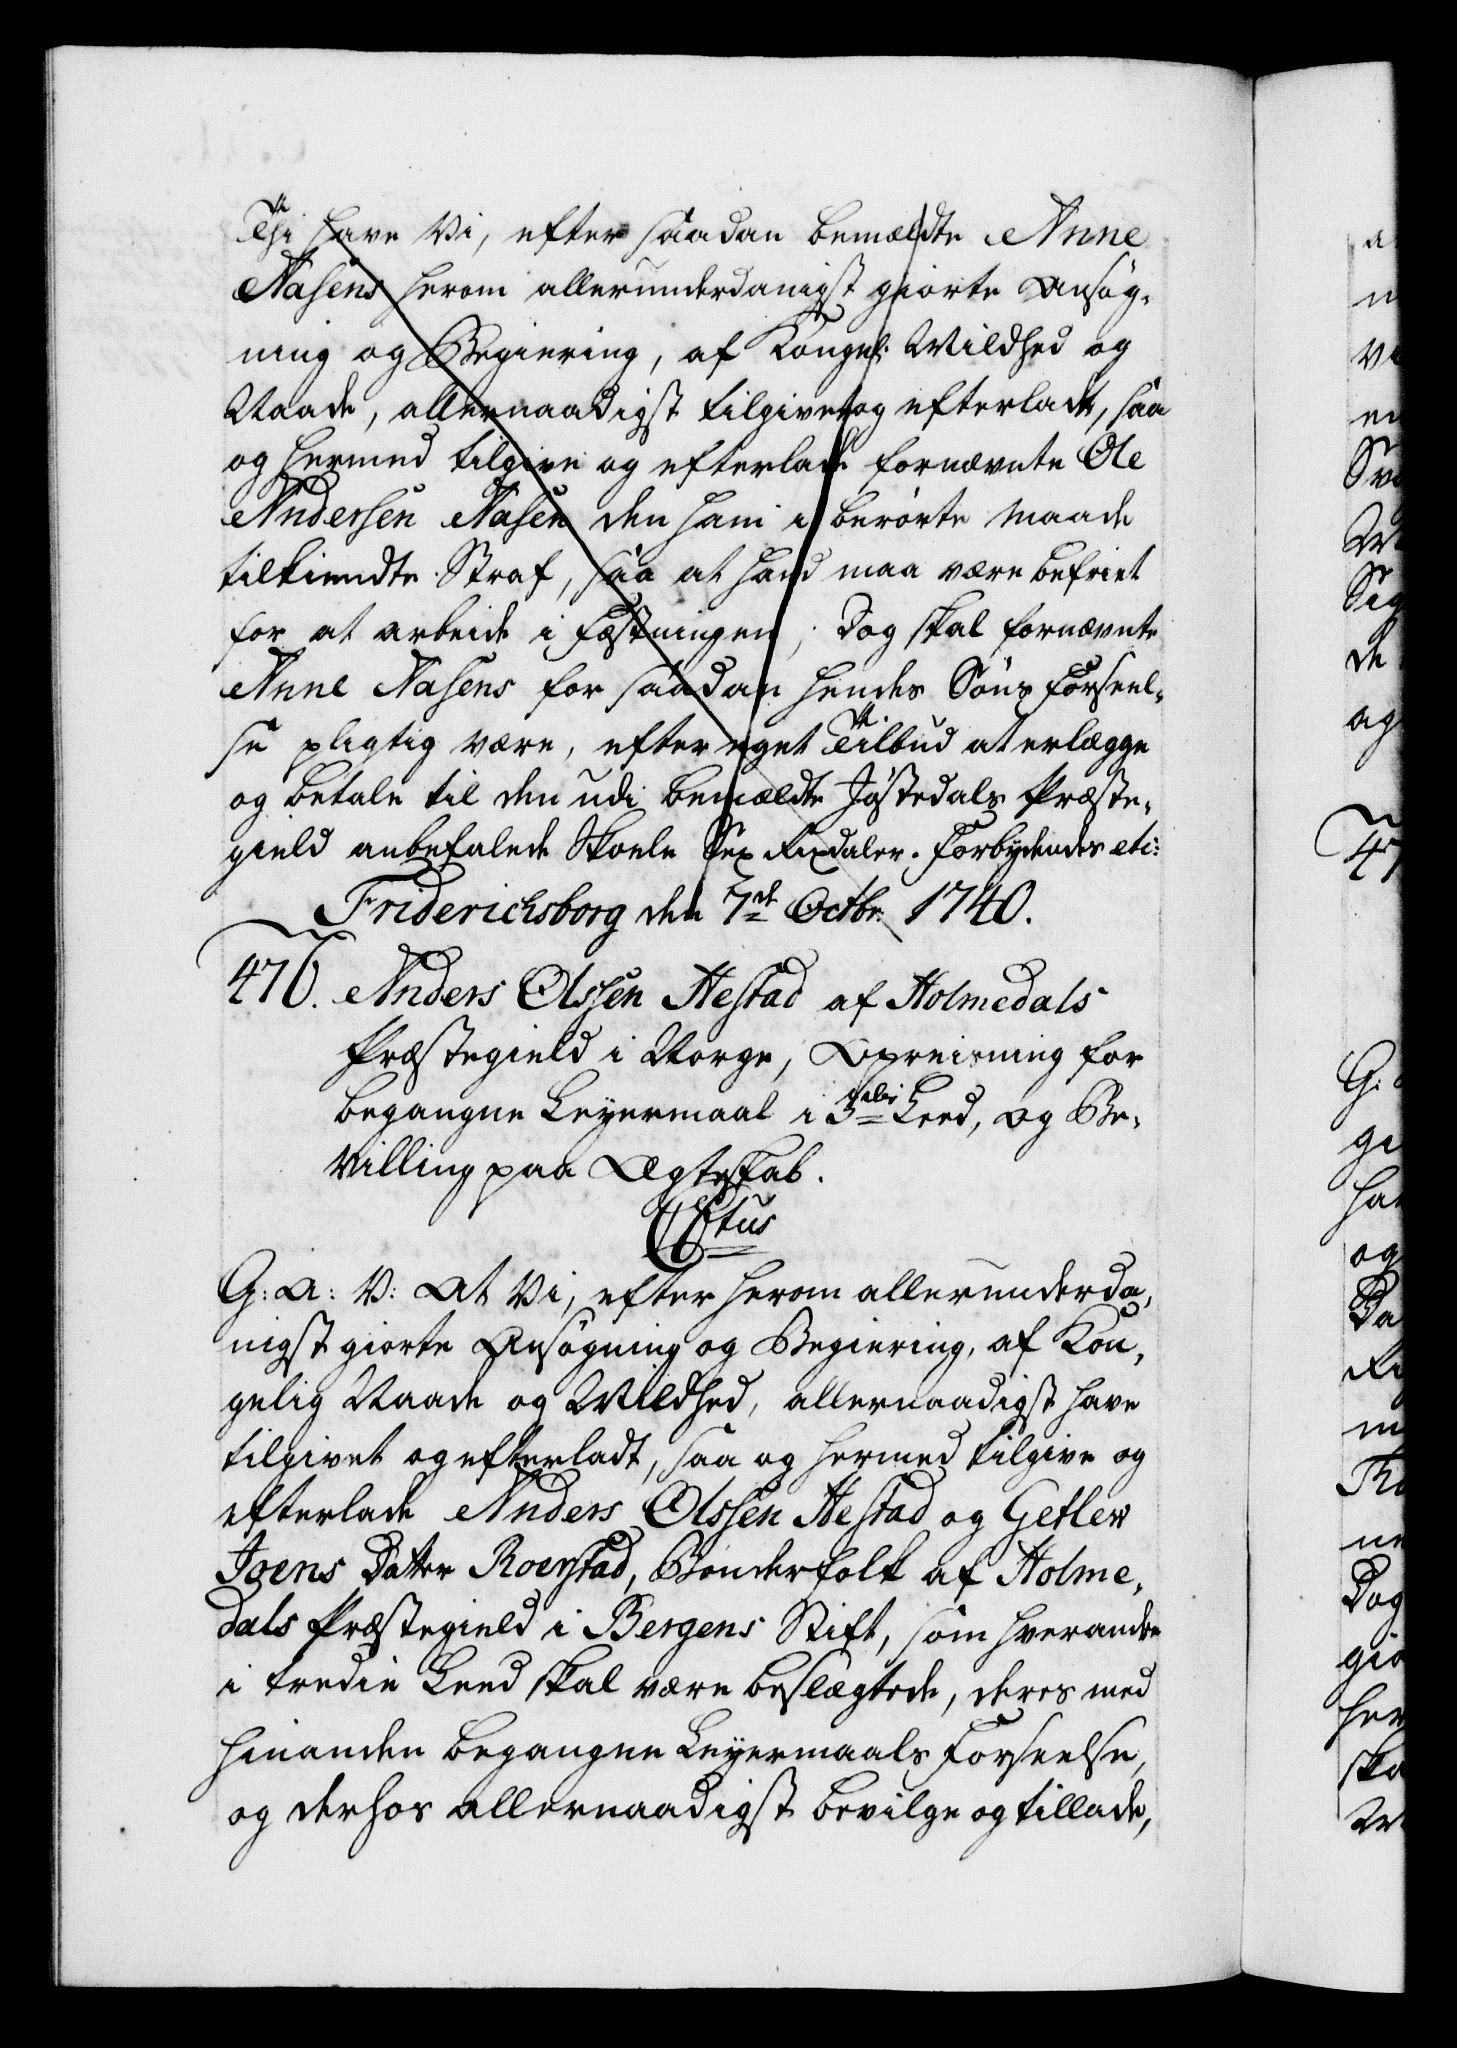 Thi have Vi, efter saadan bemældte Anne
Nasens herom allerunderdanigst giorte Ansøg-
ning og Begiering, af Kongel: Mildhed og
Naade, allernaadigst tilgivet og efterladt, saa
og hermed tilgive og efterlade fornævnte Ole
Andersen Nasen den ham i berørte Maade
tilkiendte Straf, saa at hand maa være befriet
for at arbeide i Fæstningen; Dog skal fornævnte
Anne Nasens for saadan hendes Søns Forseel-
se pligtig være, efter eget Tilbud at erlægge
og betale til den udi bemældte Jøstedals Præste-
gield anbefalede Skoele Sex Rixdaler. Forbydendes etc:
Friderichsborg den 7de Octbr: 1740.
476. Anders Olssen Hestad af Holmedals
Præstegield i Norge, Opreisning for
begangne Leyermaal i 3die Leed, og Be-
villing paa Ægteskab.
C 6tus
G: A: V: At Vi, efter herom allerunderda-
nigst giorte Ansøgning og Begiering, af Kon-
gelig Naade og Mildhed, allernaadigst have
tilgivet og efterladt, saa og hermed tilgive og
efterlade Anders Olssen Hestad og Getlew
Joens Datter Roerstad, Bønderfolk af Holme-
dals Præstegield i Bergens Stift, som hverandre
i tredie Leed skal være beslægtede, deres med
hinanden begangne Leyermaals Forseelse,
og derhos allernaadigst bevilge og tillade,